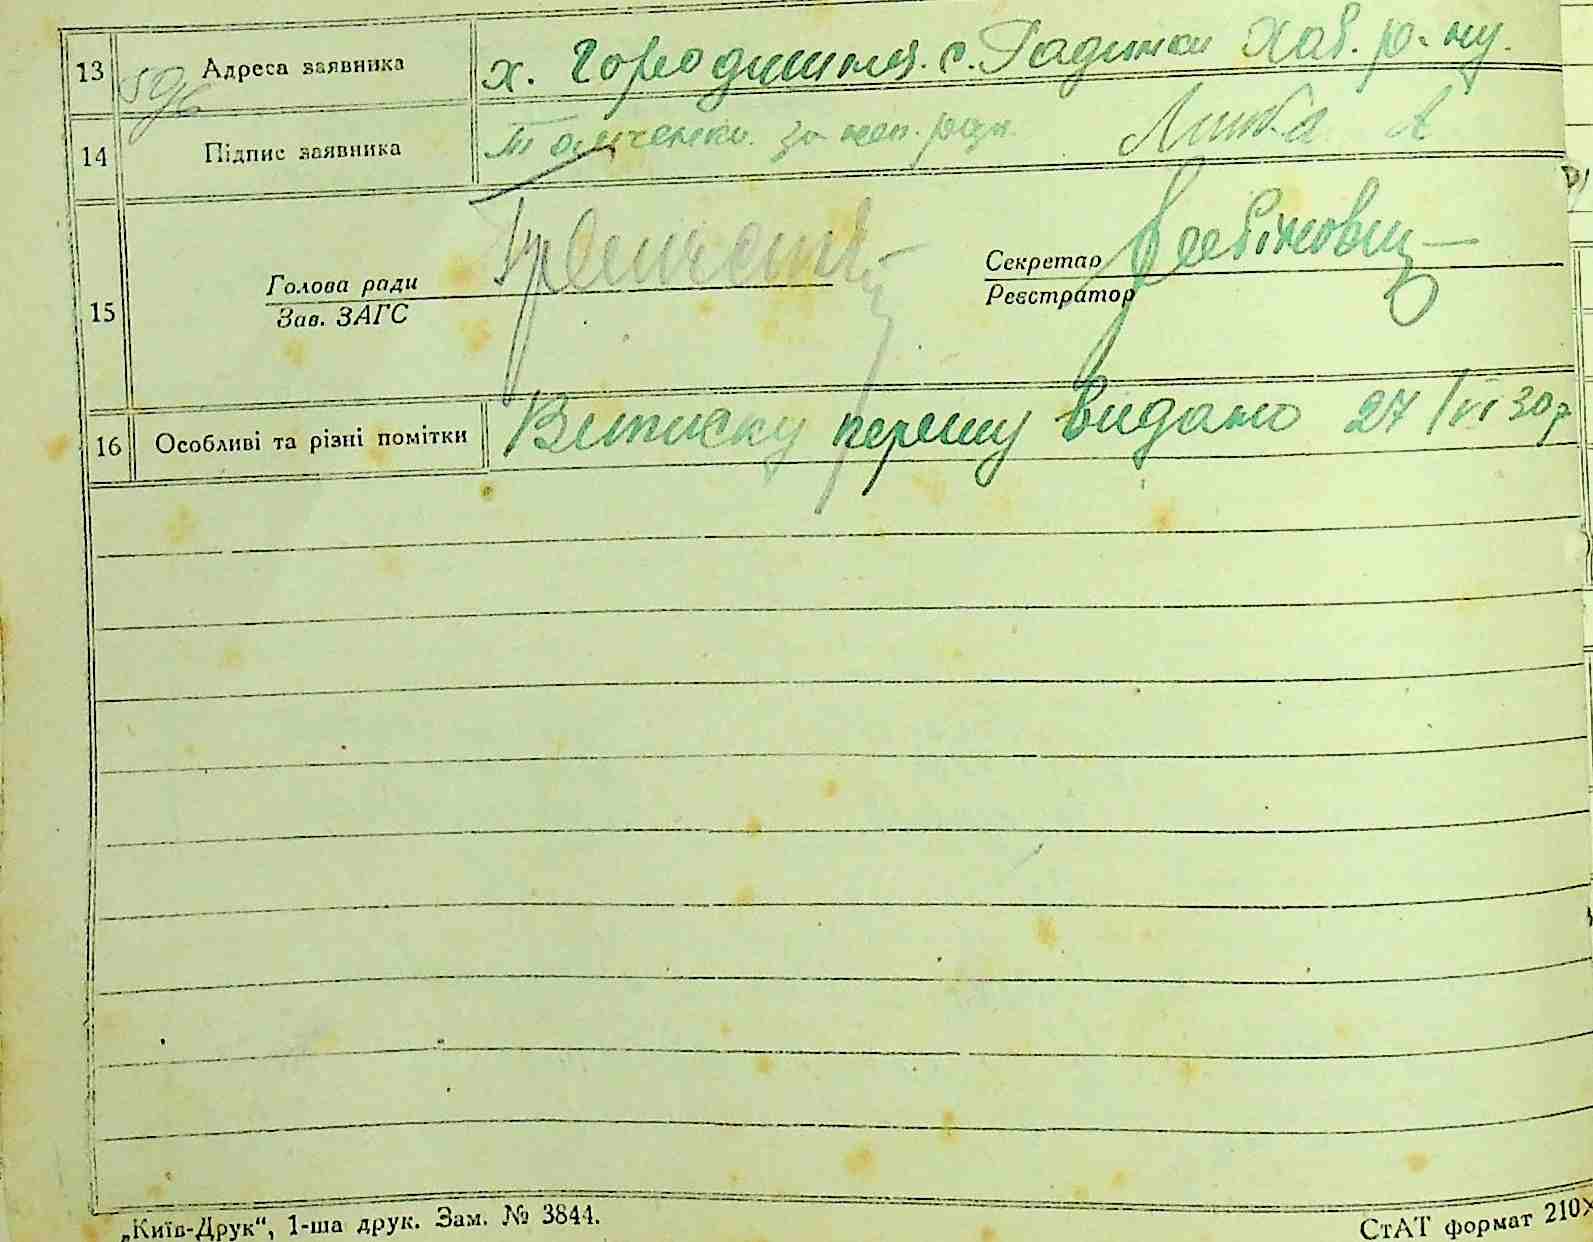 13 Адреса заявника х. Городище с. Радинка Хаб. р-ну.
14 Підпис заявника за неп. Липка А
15 Голова ради Секретар
Зав. ЗАГС Реєстратор
16 Особливі та різні помітки Виписку першу видано 27/VI 30 р
„Київ-Друк“, 1-ша друк. Зам. № 3844.
СтАТ формат 210×